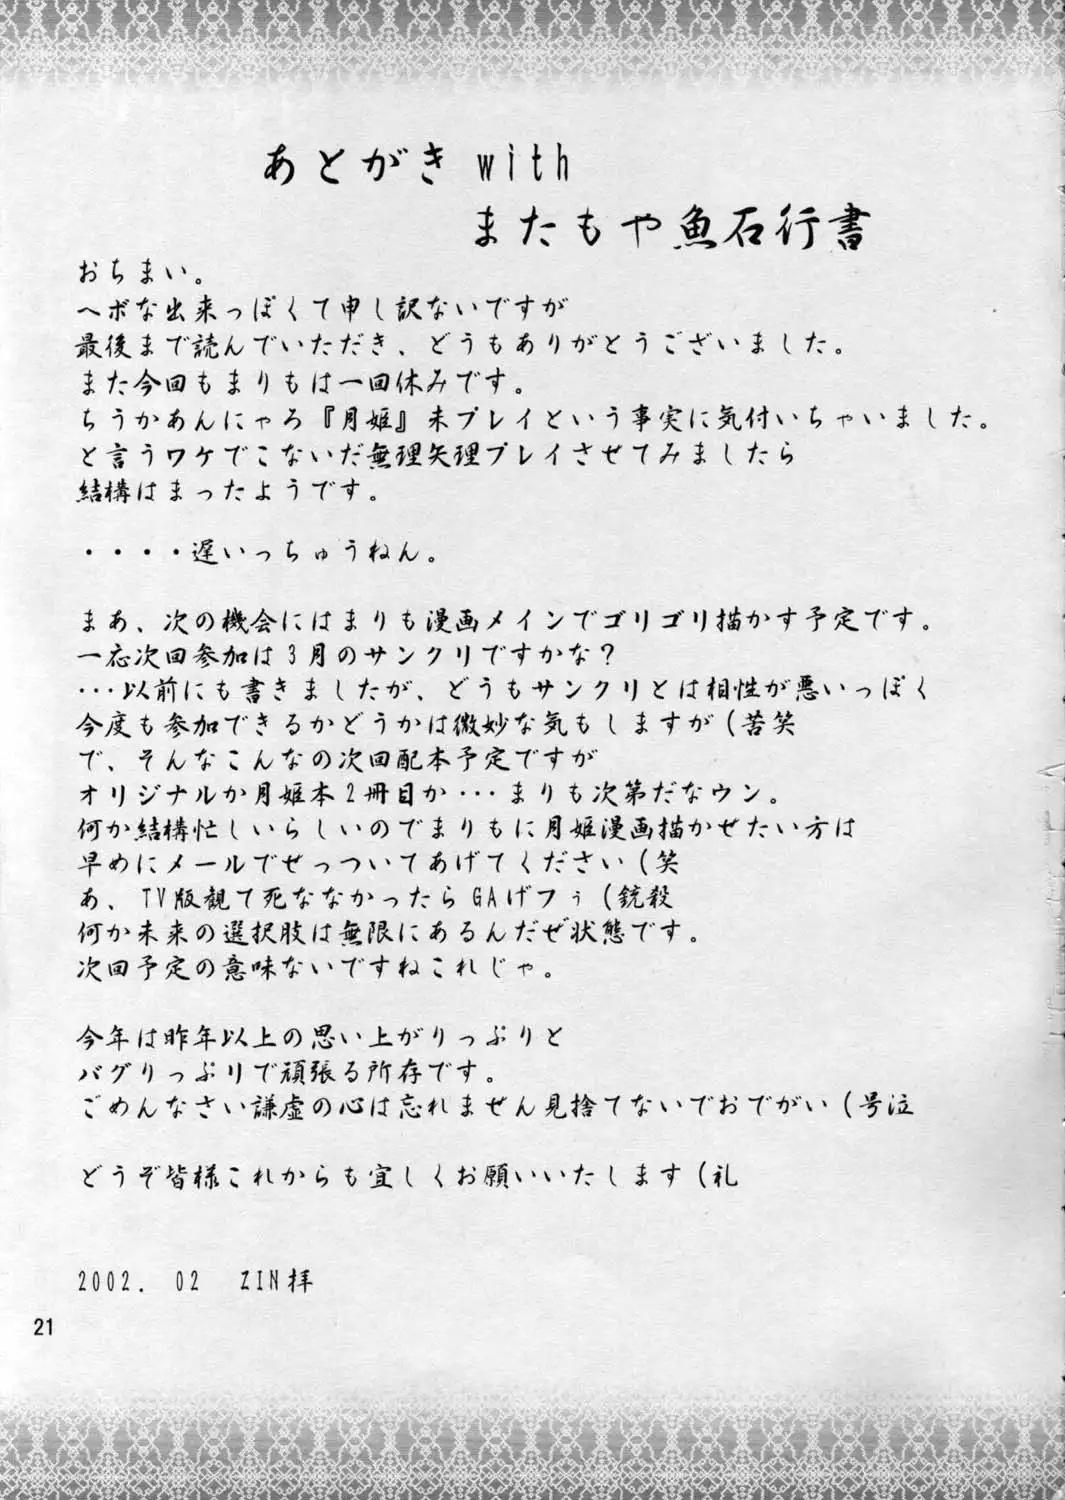 あとがき with
またもや魚石行書
おちまい。
ヘボな出来っぽくて申し訳ないですが
最後まで読んでいただき、どうもありがとうございました。
また今回もまりもは一回休みです。
ちうかあんにゃろ『月姫』未プレイという事実に気付いちゃいました。
と言うワケでこないだ無理矢理プレイさせてみましたら
結構はまったようです。
・・・・遅いっちゅうねん。
まあ、次の機会にはまりも漫画メインでゴリゴリ描かす予定です。
一応次回参加は3月のサンクリですかな？
・・・以前にも書きましたが、どうもサンクリとは相性が悪いっぽく
今度も参加できるかどうかは微妙な気もしますが（苦笑
で、そんなこんなの次回配本予定ですが
オリジナルか月姫本2冊目か・・・まりも次第だなウン。
何か結構忙しいらしいのでまりもに月姫漫画描かせたい方は
早めにメールでせっついてあげてください（笑
あ、TV版観て死ななかったらGAげフぅ（銃殺
何か未来の選択肢は無限にあるんだぜ状態です。
次回予定の意味ないですねこれじゃ。
今年は昨年以上の思い上がりっぷりと
バグりっぷりで頑張る所存です。
ごめんなさい謙虚の心は忘れません見捨てないでおでがい（号泣
どうぞ皆様これからも宜しくお願いいたします（礼
2002. 02 ZIN拝
21